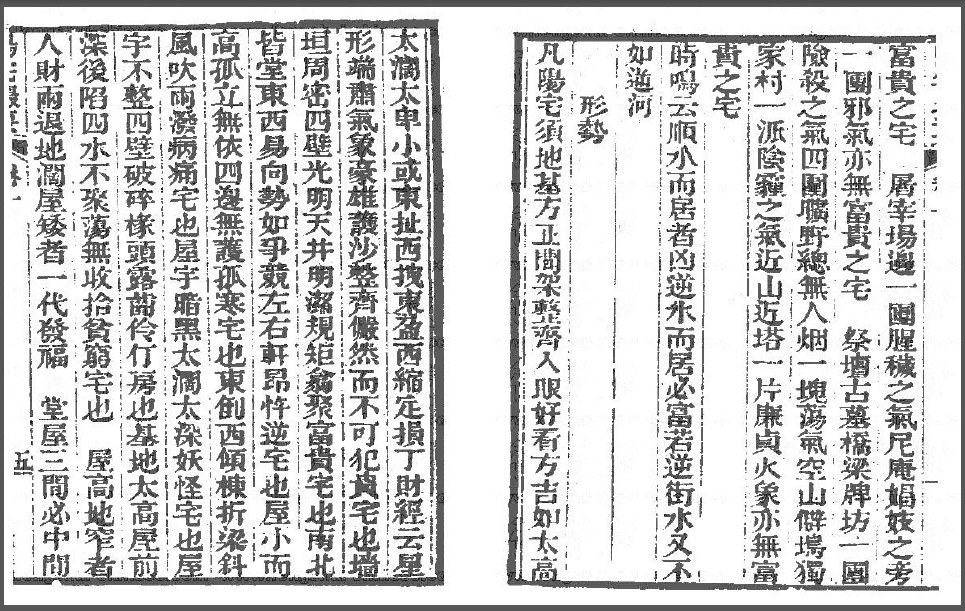 富貴之宅　屠宰場邊一團腥穢之氣尼庵娼妓之旁
一團邪氣亦無富貴之宅　祭壇古墓橋梁牌坊一團
險殺之氣四圍曠野總無人烟一塊蕩氣空山僻塢獨
家村一派陰霾之氣近山近塔一片廉貞火象亦無富
貴之宅
時鳴云順水而居者凶逆水而居必富若逆街水又不
如逆河
形勢
凡陽宅須地基方正間架整齊入眼好看方吉如太高
太濶太卑小或東扯西拽東盈西縮定損丁財經云屋
形端肅氣象豪雄護沙整齊儼然而不可犯貴宅也墻
垣周密四壁光明天井明潔規矩翕聚富貴宅也南北
皆堂東西易向勢如爭競左右軒昂忤逆宅也屋小而
高孤立無依四邊無護孤寒宅也東倒西傾棟折梁斜
風吹雨潑病痛宅也屋宇暗黑太濶太深妖怪宅也屋
宇不整四壁破碎椽頭露齒伶仃房也基地太高屋前
深後陷四水不聚蕩無收拾貧窮宅也　屋高地窄者
人財兩退地濶屋矮者一代發福　堂屋三間必中間
五